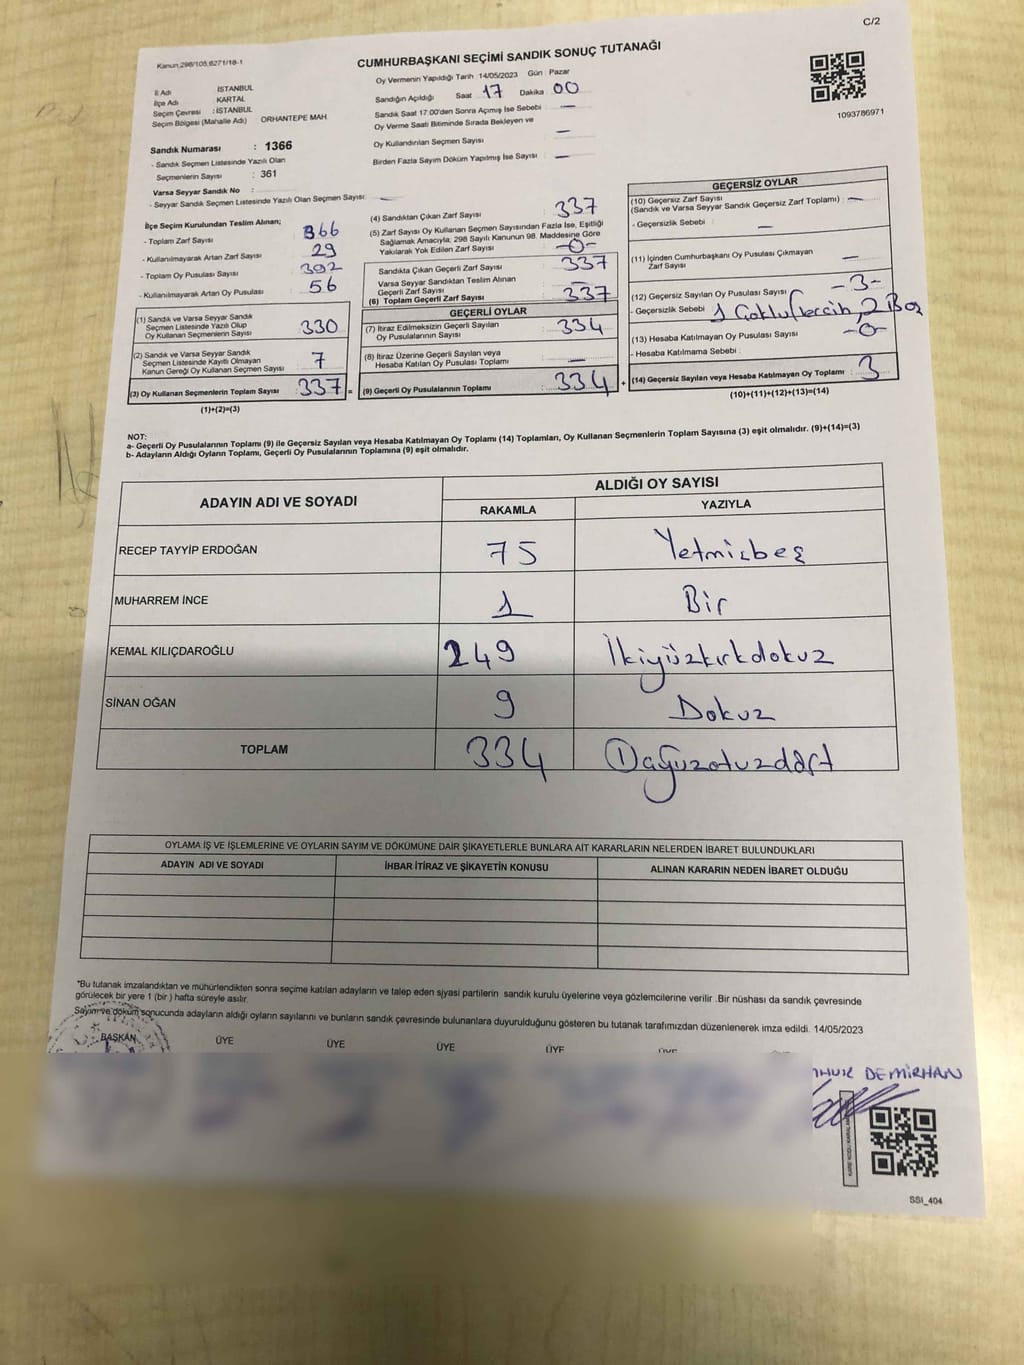 C/2
Kanun:298/105;6271/18-1
CUMHURBAŞKANI SEÇİMİ SANDIK SONUÇ TUTANAĞI
Oy Vermenin Yapıldığı Tarih 14/05/2023 Gün Pazar
İl Adı İSTANBUL
İlçe Adı KARTAL
Seçim Çevresi : İSTANBUL
Seçim Bölgesi (Mahalle Adı) ORHANTEPE MAH.
Sandığın Açıldığı Saat 17 Dakika 00
Sandık Saat 17:00'den Sonra Açılmış İse Sebebi : —
Oy Verme Saati Bitiminde Sırada Bekleyen ve
Oy Kullandırılan Seçmen Sayısı : —
Birden Fazla Sayım Döküm Yapılmış İse Sayısı : —
1093786971
Sandık Numarası : 1366
- Sandık Seçmen Listesinde Yazılı Olan
Seçmenlerin Sayısı : 361
Varsa Seyyar Sandık No :
- Seyyar Sandık Seçmen Listesinde Yazılı Olan Seçmen Sayısı: —
İlçe Seçim Kurulundan Teslim Alınan;
- Toplam Zarf Sayısı 366
- Kullanılmayarak Artan Zarf Sayısı 29
- Toplam Oy Pusulası Sayısı 392
- Kullanılmayarak Artan Oy Pusulası 56
(1) Sandık ve Varsa Seyyar Sandık
Seçmen Listesinde Yazılı Olup
Oy Kullanan Seçmenlerin Sayısı : 330
(2) Sandık ve Varsa Seyyar Sandık
Seçmen Listesinde Kayıtlı Olmayan
Kanun Gereği Oy Kullanan Seçmen Sayısı : 7
(3) Oy Kullanan Seçmenlerin Toplam Sayısı : 337 =
(1)+(2)=(3)
(4) Sandıktan Çıkan Zarf Sayısı : 337
(5) Zarf Sayısı Oy Kullanan Seçmen Sayısından Fazla İse, Eşitliği
Sağlamak Amacıyla, 298 Sayılı Kanunun 98. Maddesine Göre
Yakılarak Yok Edilen Zarf Sayısı : -0-
Sandıkta Çıkan Geçerli Zarf Sayısı : 337
Varsa Seyyar Sandıktan Teslim Alınan
Geçerli Zarf Sayısı : —
(6) Toplam Geçerli Zarf Sayısı : 337
GEÇERLİ OYLAR
(7) İtiraz Edilmeksizin Geçerli Sayılan
Oy Pusulalarının Sayısı : 334
(8) İtiraz Üzerine Geçerli Sayılan veya
Hesaba Katılan Oy Pusulası Toplamı : —
(9) Geçerli Oy Pusulalarının Toplamı : 334 +
GEÇERSİZ OYLAR
(10) Geçersiz Zarf Sayısı
(Sandık ve Varsa Seyyar Sandık Geçersiz Zarf Toplamı) : —
- Geçersizlik Sebebi : —
(11) İçinden Cumhurbaşkanı Oy Pusulası Çıkmayan
Zarf Sayısı : —
(12) Geçersiz Sayılan Oy Pusulası Sayısı : -3-
- Geçersizlik Sebebi : 1 Çoklu tercih, 2 Boş
(13) Hesaba Katılmayan Oy Pusulası Sayısı : -0-
- Hesaba Katılmama Sebebi :
(14) Geçersiz Sayılan veya Hesaba Katılmayan Oy Toplamı : 3
(10)+(11)+(12)+(13)=(14)
NOT:
a- Geçerli Oy Pusulalarının Toplamı (9) ile Geçersiz Sayılan veya Hesaba Katılmayan Oy Toplamı (14) Toplamları, Oy Kullanan Seçmenlerin Toplam Sayısına (3) eşit olmalıdır. (9)+(14)=(3)
b- Adayların Aldığı Oyların Toplamı, Geçerli Oy Pusulalarının Toplamına (9) eşit olmalıdır.
ADAYIN ADI VE SOYADI ALDIĞI OY SAYISI
RAKAMLA YAZIYLA
RECEP TAYYİP ERDOĞAN 75 Yetmişbeş
MUHARREM İNCE 1 Bir
KEMAL KILIÇDAROĞLU 249 İkiyüzkırkdokuz
SİNAN OĞAN 9 Dokuz
TOPLAM 334
OYLAMA İŞ VE İŞLEMLERİNE VE OYLARIN SAYIM VE DÖKÜMÜNE DAİR ŞİKAYETLERLE BUNLARA AİT KARARLARIN NELERDEN İBARET BULUNDUKLARI
ADAYIN ADI VE SOYADI İHBAR İTİRAZ VE ŞİKAYETİN KONUSU ALINAN KARARIN NEDEN İBARET OLDUĞU
*Bu tutanak imzalandıktan ve mühürlendikten sonra seçime katılan adayların ve talep eden siyasi partilerin sandık kurulu üyelerine veya gözlemcilerine verilir .Bir nüshası da sandık çevresinde
görülecek bir yere 1 (bir ) hafta süreyle asılır.
Sayım ve döküm sonucunda adayların aldığı oyların sayılarını ve bunların sandık çevresinde bulunanlara duyurulduğunu gösteren bu tutanak tarafımızdan düzenlenerek imza edildi. 14/05/2023
BAŞKAN ÜYE ÜYE ÜYE ÜYE
DEMİRHAN
SSI_404